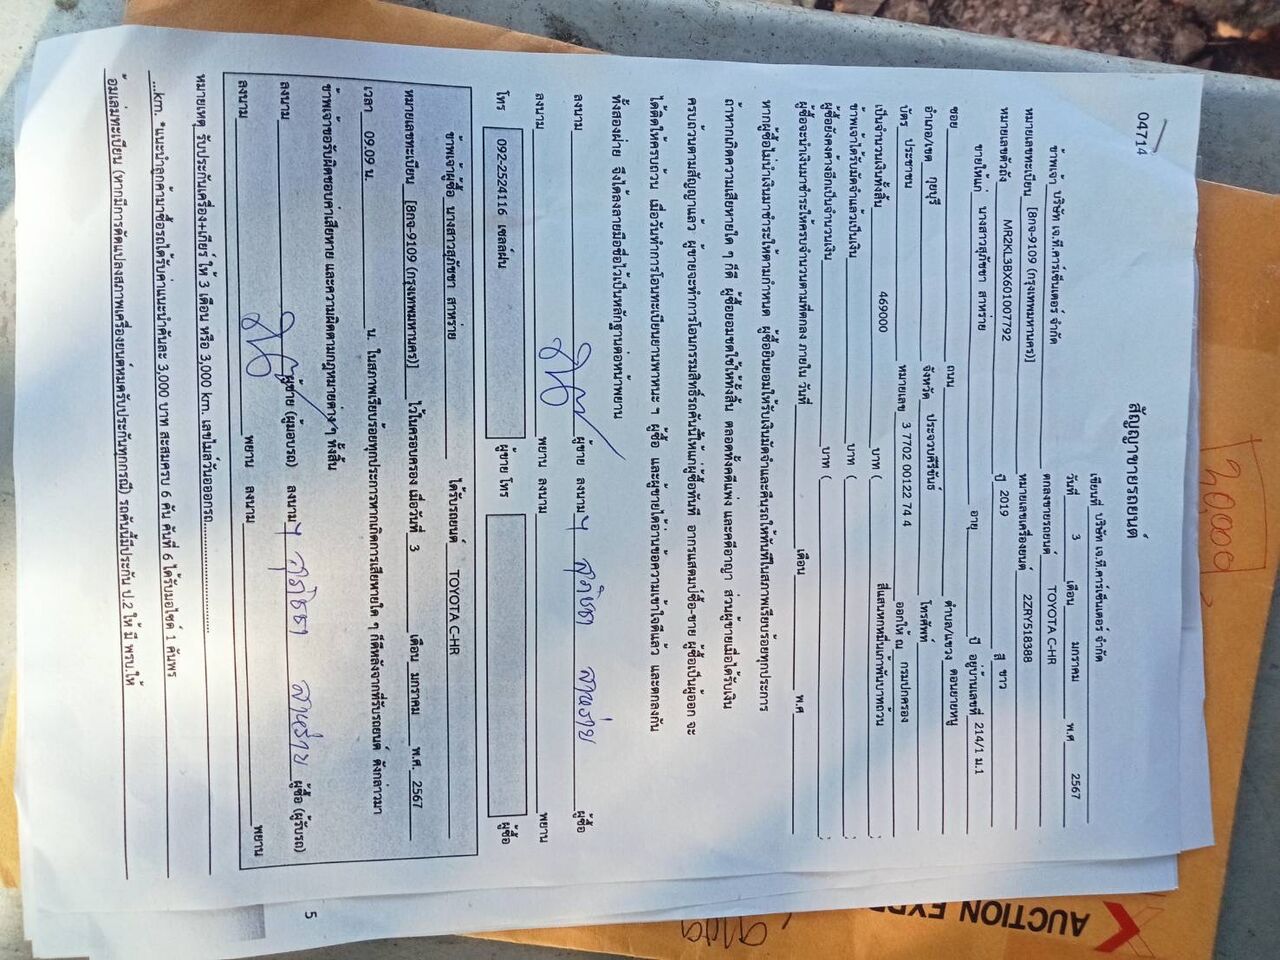 04714
สัญญาขายรถยนต์
เขียนที่ บริษัท เจ.ที.คาร์เซ็นเตอร์ จำกัด
วันที่ 3 เดือน มกราคม พ.ศ 2567
ข้าพเจ้า บริษัท เจ.ที.คาร์เซ็นเตอร์ จำกัด ตกลงขายรถยนต์ TOYOTA C-HR
หมายเลขทะเบียน [8กจ-9109 (กรุงเทพมหานคร)] หมายเลขเครื่องยนต์ 2ZRY518388
หมายเลขตัวถัง MR2KL3BX601007792 ปี 2019 สี ขาว
ขายให้แก่ นางสาวสุภัชชา สาหร่าย อายุ ปี อยู่บ้านเลขที่ 214/1 ม.1
ซอย ถนน ตำบล/แขวง ดอนยายหนู
อำเภอ/เขต กุยบุรี จังหวัด ประจวบคีรีขันธ์ โทรศัพท์
บัตร ประชาชน หมายเลข 3 7702 00122 74 4 ออกให้ ณ กรมปกครอง
เป็นจำนวนเงินทั้งสิ้น 469000 บาท ( สี่แสนหกหมื่นเก้าพันบาทถ้วน )
ข้าพเจ้าได้รับมัดจำแล้วเป็นเงิน บาท ( )
ผู้ซื้อยังคงค้างอีกเป็นจำนวนเงิน บาท ( )
ผู้ซื้อจะนำเงินมาชำระให้ครบจำนวนตามที่ตกลง ภายใน วันที่ เดือน พ.ศ
หากผู้ซื้อไม่นำเงินมาชำระให้ตามกำหนด ผู้ซื้อยินยอมให้รับเงินมัดจำและคืนรถให้ทันทีในสภาพเรียบร้อยทุกประการ
ถ้าหากเกิดความเสียหายใด ๆ ก็ดี ผู้ซื้อยอมชดใช้ให้ทั้งสิ้น ตลอดทั้งคดีแพ่ง และคดีอาญา ส่วนผู้ขายเมื่อได้รับเงิน
ครบถ้วนตามสัญญาแล้ว ผู้ขายจะทำการโอนกรรมสิทธิ์รถคันนี้ให้แก่ผู้ซื้อทันที อากรแสตมป์ซื้อ-ขาย ผู้ซื้อเป็นผู้ออก จะ
ได้ติดให้ครบถ้วน เมื่อวันทำการโอนทะเบียนยานพาหนะ ๆ ผู้ซื้อ และผู้ขายได้อ่านข้อความเข้าใจดีแล้ว และตกลงกัน
ทั้งสองฝ่าย จึงได้ลงลายมือชื่อไว้เป็นหลักฐานต่อหน้าพยาน
ลงนาม ผู้ขาย ลงนาม สุภัชชา สาหร่าย ผู้ซื้อ
ลงนาม พยาน ลงนาม พยาน
โทร 092-2524116 เซลล์ฝน ผู้ขาย โทร ผู้ซื้อ
ข้าพเจ้าผู้ซื้อ นางสาวสุภัชชา สาหร่าย ได้รับรถยนต์ TOYOTA C-HR
หมายเลขทะเบียน [8กจ-9109 (กรุงเทพมหานคร)] ไว้ในครอบครอง เมื่อวันที่ 3 เดือน มกราคม พ.ศ. 2567
เวลา 09.09 น. น. ในสภาพเรียบร้อยทุกประการหากเกิดการเสียหายใด ๆ ก็ดีหลังจากที่รับรถยนต์ ดังกล่าวมา
ข้าพเจ้าขอรับผิดชอบค่าเสียหาย และความผิดตามกฎหมายต่าง ๆ ทั้งสิ้น
ลงนาม ผู้ขาย (ผู้มอบรถ) ลงนาม สุภัชชา สาหร่าย ผู้ซื้อ (ผู้รับรถ)
ลงนาม พยาน ลงนาม พยาน
หมายเหตุ รับประกันเครื่อง+เกียร์ ให้ 3 เดือน หรือ 3,000 km. เลขไมล์วันออกรถ
....km. *แนะนำลูกค้ามาซื้อรถได้รับค่าแนะนำคันละ 3,000 บาท สะสมครบ 6 คัน คันที่ 6 ได้รับมอไซค์ 1 คันพร
้อมเล่มทะเบียน (หากมีการดัดแปลงสภาพเครื่องยนต์หมดรับประกันทุกกรณี) รถคันนี้มีประกัน ป.2 ให้ มี พรบ.ให้
5
20,000
AUCTION EXP